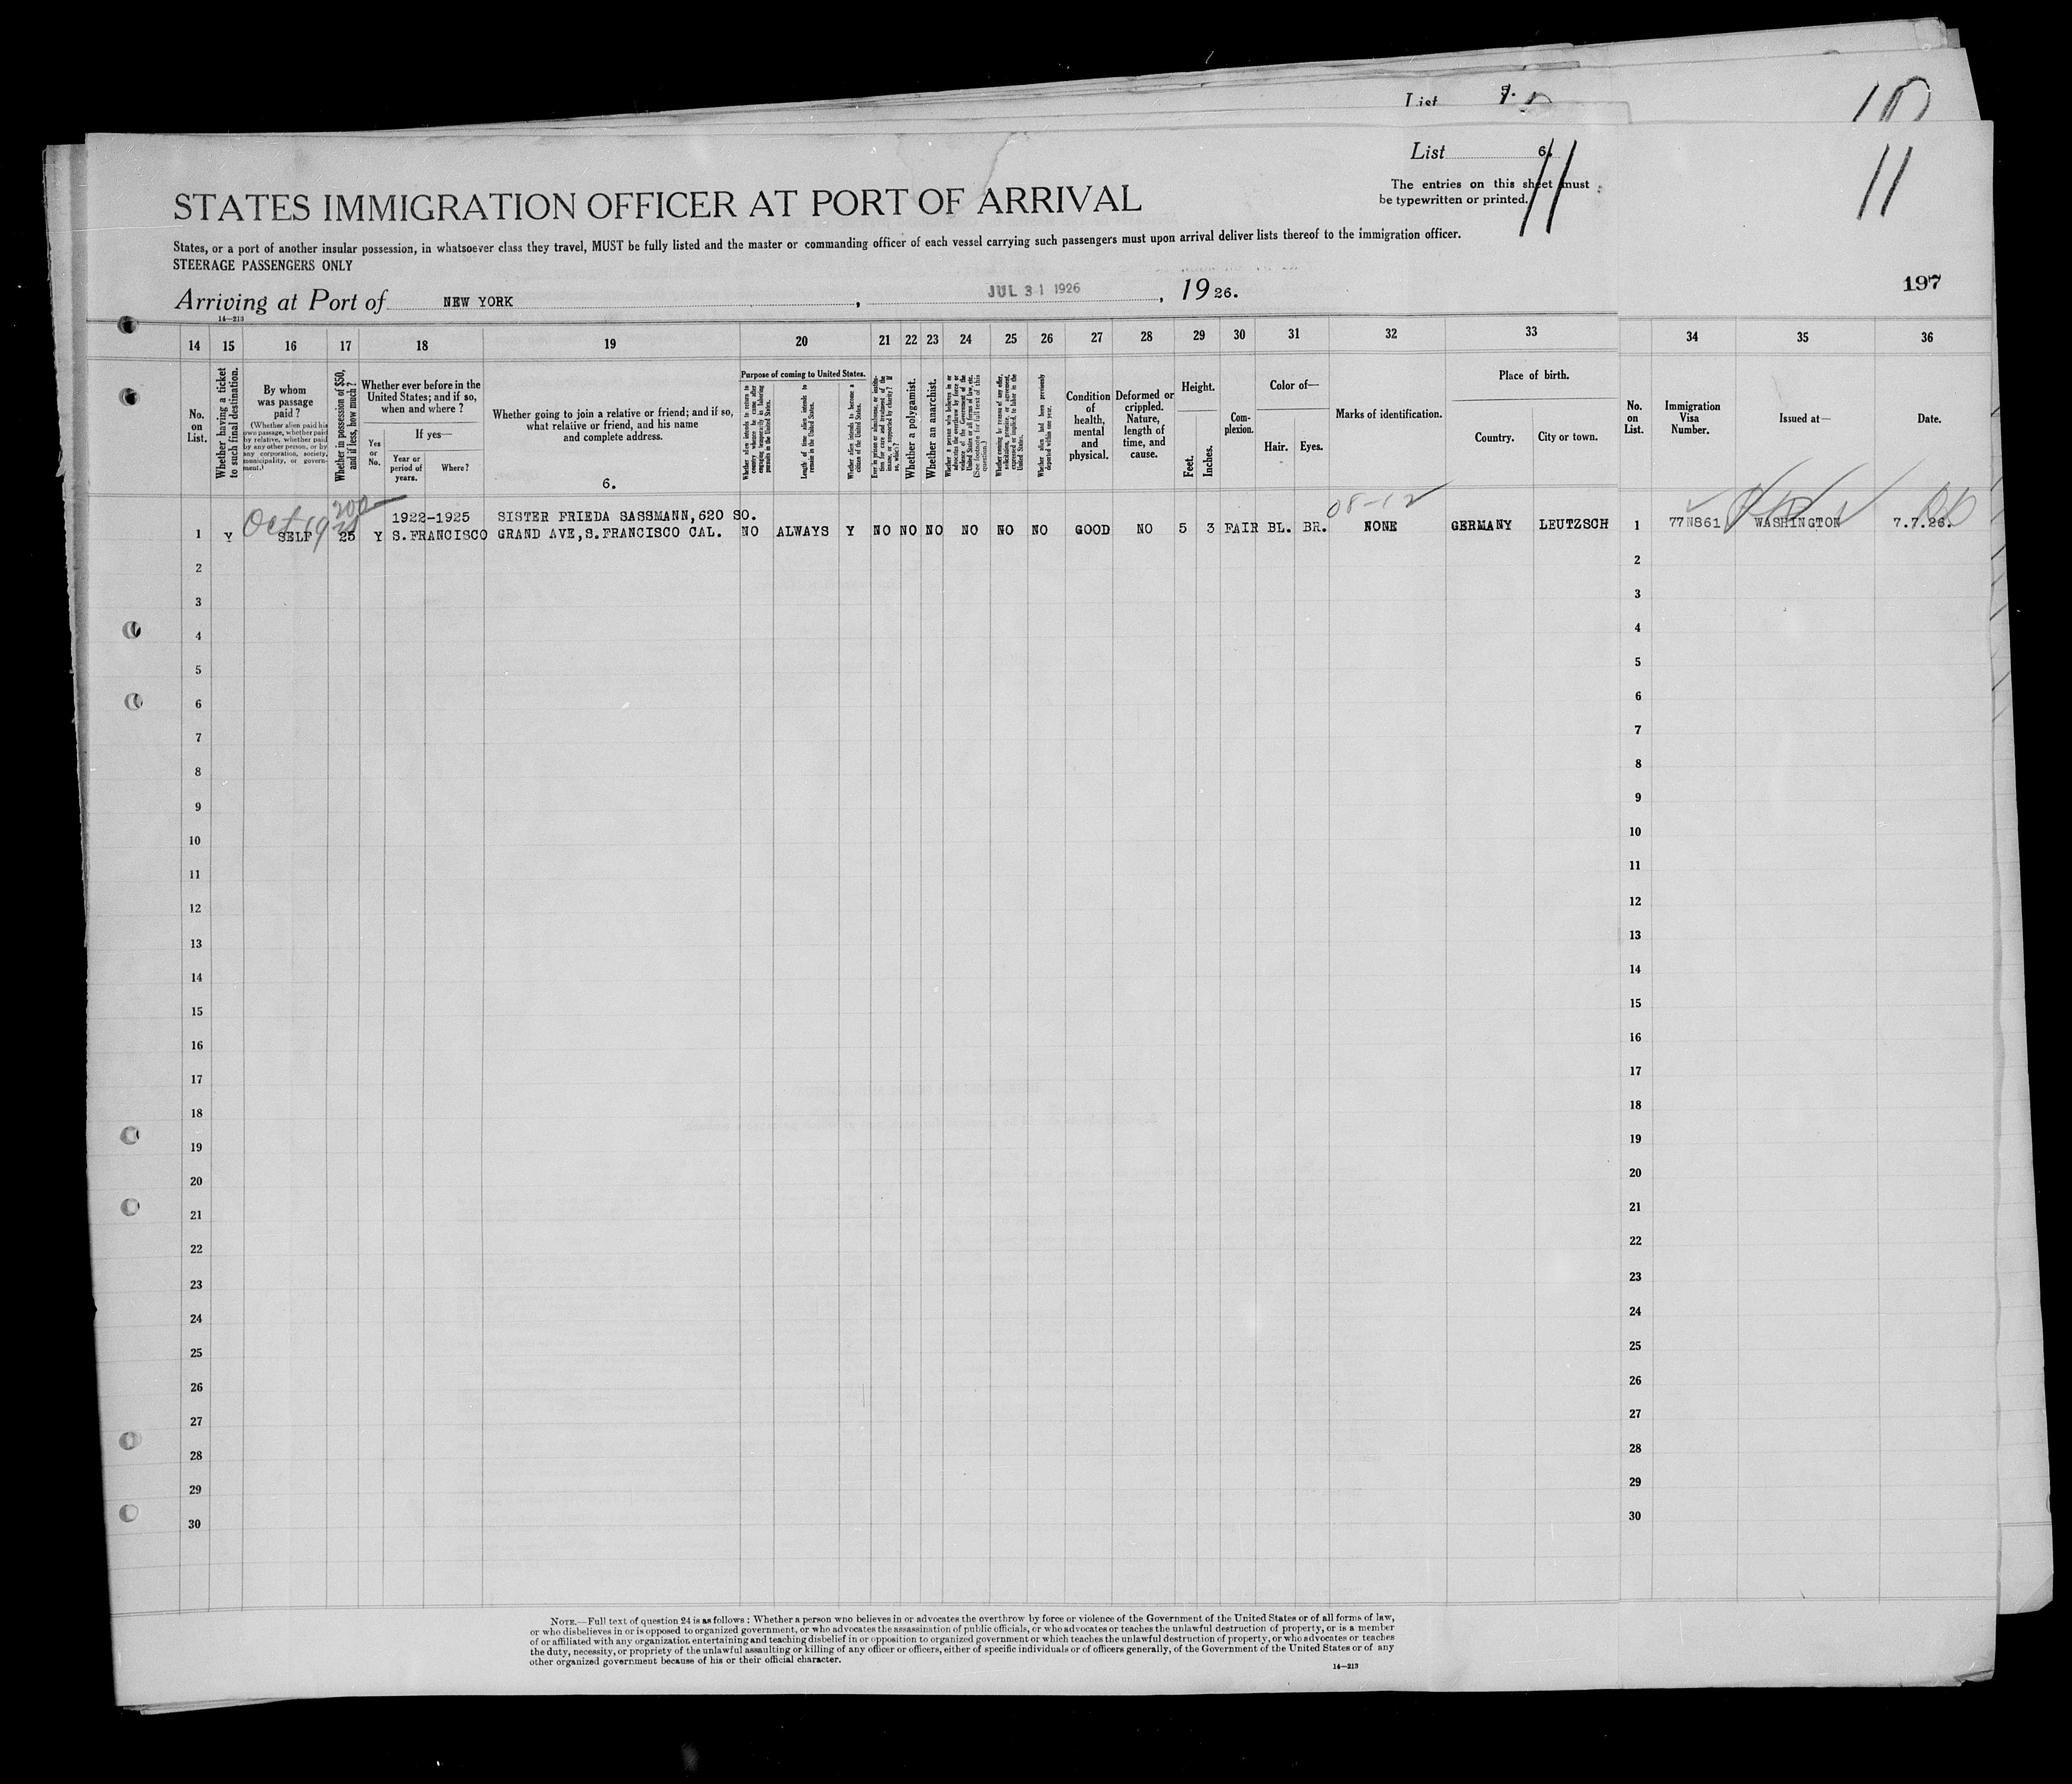 List
List 6.
11
11
The entries on this sheet must
be typewritten or printed.
STATES IMMIGRATION OFFICER AT PORT OF ARRIVAL
States, or a port of another insular possession, in whatsoever class they travel, MUST be fully listed and the master or commanding officer of each vessel carrying such passengers must upon arrival deliver lists thereof to the immigration officer.
STEERAGE PASSENGERS ONLY
197
Arriving at Port of NEW YORK, JUL 31 1926, 1926.
14—213
14 15 16 17 18 19 20 21 22 23 24 25 26 27 28 29 30 31 32 33 34 35 36
No. on List.
Whether having a ticket to such final destination.
By whom was passage paid?
(Whether alien paid his own passage, whether paid by relative, whether paid by any other person, or by any corporation, society, municipality, or government.)
Whether in possession of $50, and if less, how much?
Whether ever before in the United States; and if so, when and where?
Yes or No.
If yes—
Year or period of years.
Where?
Whether going to join a relative or friend; and if so, what relative or friend, and his name and complete address.
6.
Purpose of coming to United States.
Whether alien intends to return to country whence he came after engaging temporarily in laboring pursuits in the United States.
Length of time alien intends to remain in the United States.
Whether alien intends to become a citizen of the United States.
Ever in prison or almshouse, or institution for care and treatment of the insane, or supported by charity? If so, which?
Whether a polygamist.
Whether an anarchist.
Whether a person who believes in or advocates the overthrow by force or violence of the Government of the United States or all forms of law, etc. (See footnote for full text of this question.)
Whether coming by reason of any offer, solicitation, promise, or agreement, expressed or implied, to labor in the United States.
Whether alien had been previously deported within one year.
Condition of health, mental and physical.
Deformed or crippled. Nature, length of time, and cause.
Height.
Feet.
Inches.
Complexion.
Color of—
Hair.
Eyes.
Marks of identification.
Place of birth.
Country.
City or town.
No. on List.
Immigration Visa Number.
Issued at—
Date.
200
08-12
1922-1925 SISTER FRIEDA SASSMANN,620 SO.
1 Y SELF 25 Y S.FRANCISCO GRAND AVE,S.FRANCISCO CAL. NO ALWAYS Y NO NO NO NO NO NO GOOD NO 5 3 FAIR BL. BR. NONE GERMANY LEUTZSCH 1 77N861 WASHINGTON 7.7.26.
2 2
3 3
4 4
5 5
6 6
7 7
8 8
9 9
10 10
11 11
12 12
13 13
14 14
15 15
16 16
17 17
18 18
19 19
20 20
21 21
22 22
23 23
24 24
25 25
26 26
27 27
28 28
29 29
30 30
NOTE.—Full text of question 24 is as follows: Whether a person who believes in or advocates the overthrow by force or violence of the Government of the United States or of all forms of law,
or who disbelieves in or is opposed to organized government, or who advocates the assassination of public officials, or who advocates or teaches the unlawful destruction of property, or is a member
of or affiliated with any organization entertaining and teaching disbelief in or opposition to organized government or which teaches the unlawful destruction of property, or who advocates or teaches
the duty, necessity, or propriety of the unlawful assaulting or killing of any officer or officers, either of specific individuals or of officers generally, of the Government of the United States or of any
other organized government because of his or their official character.
14—213